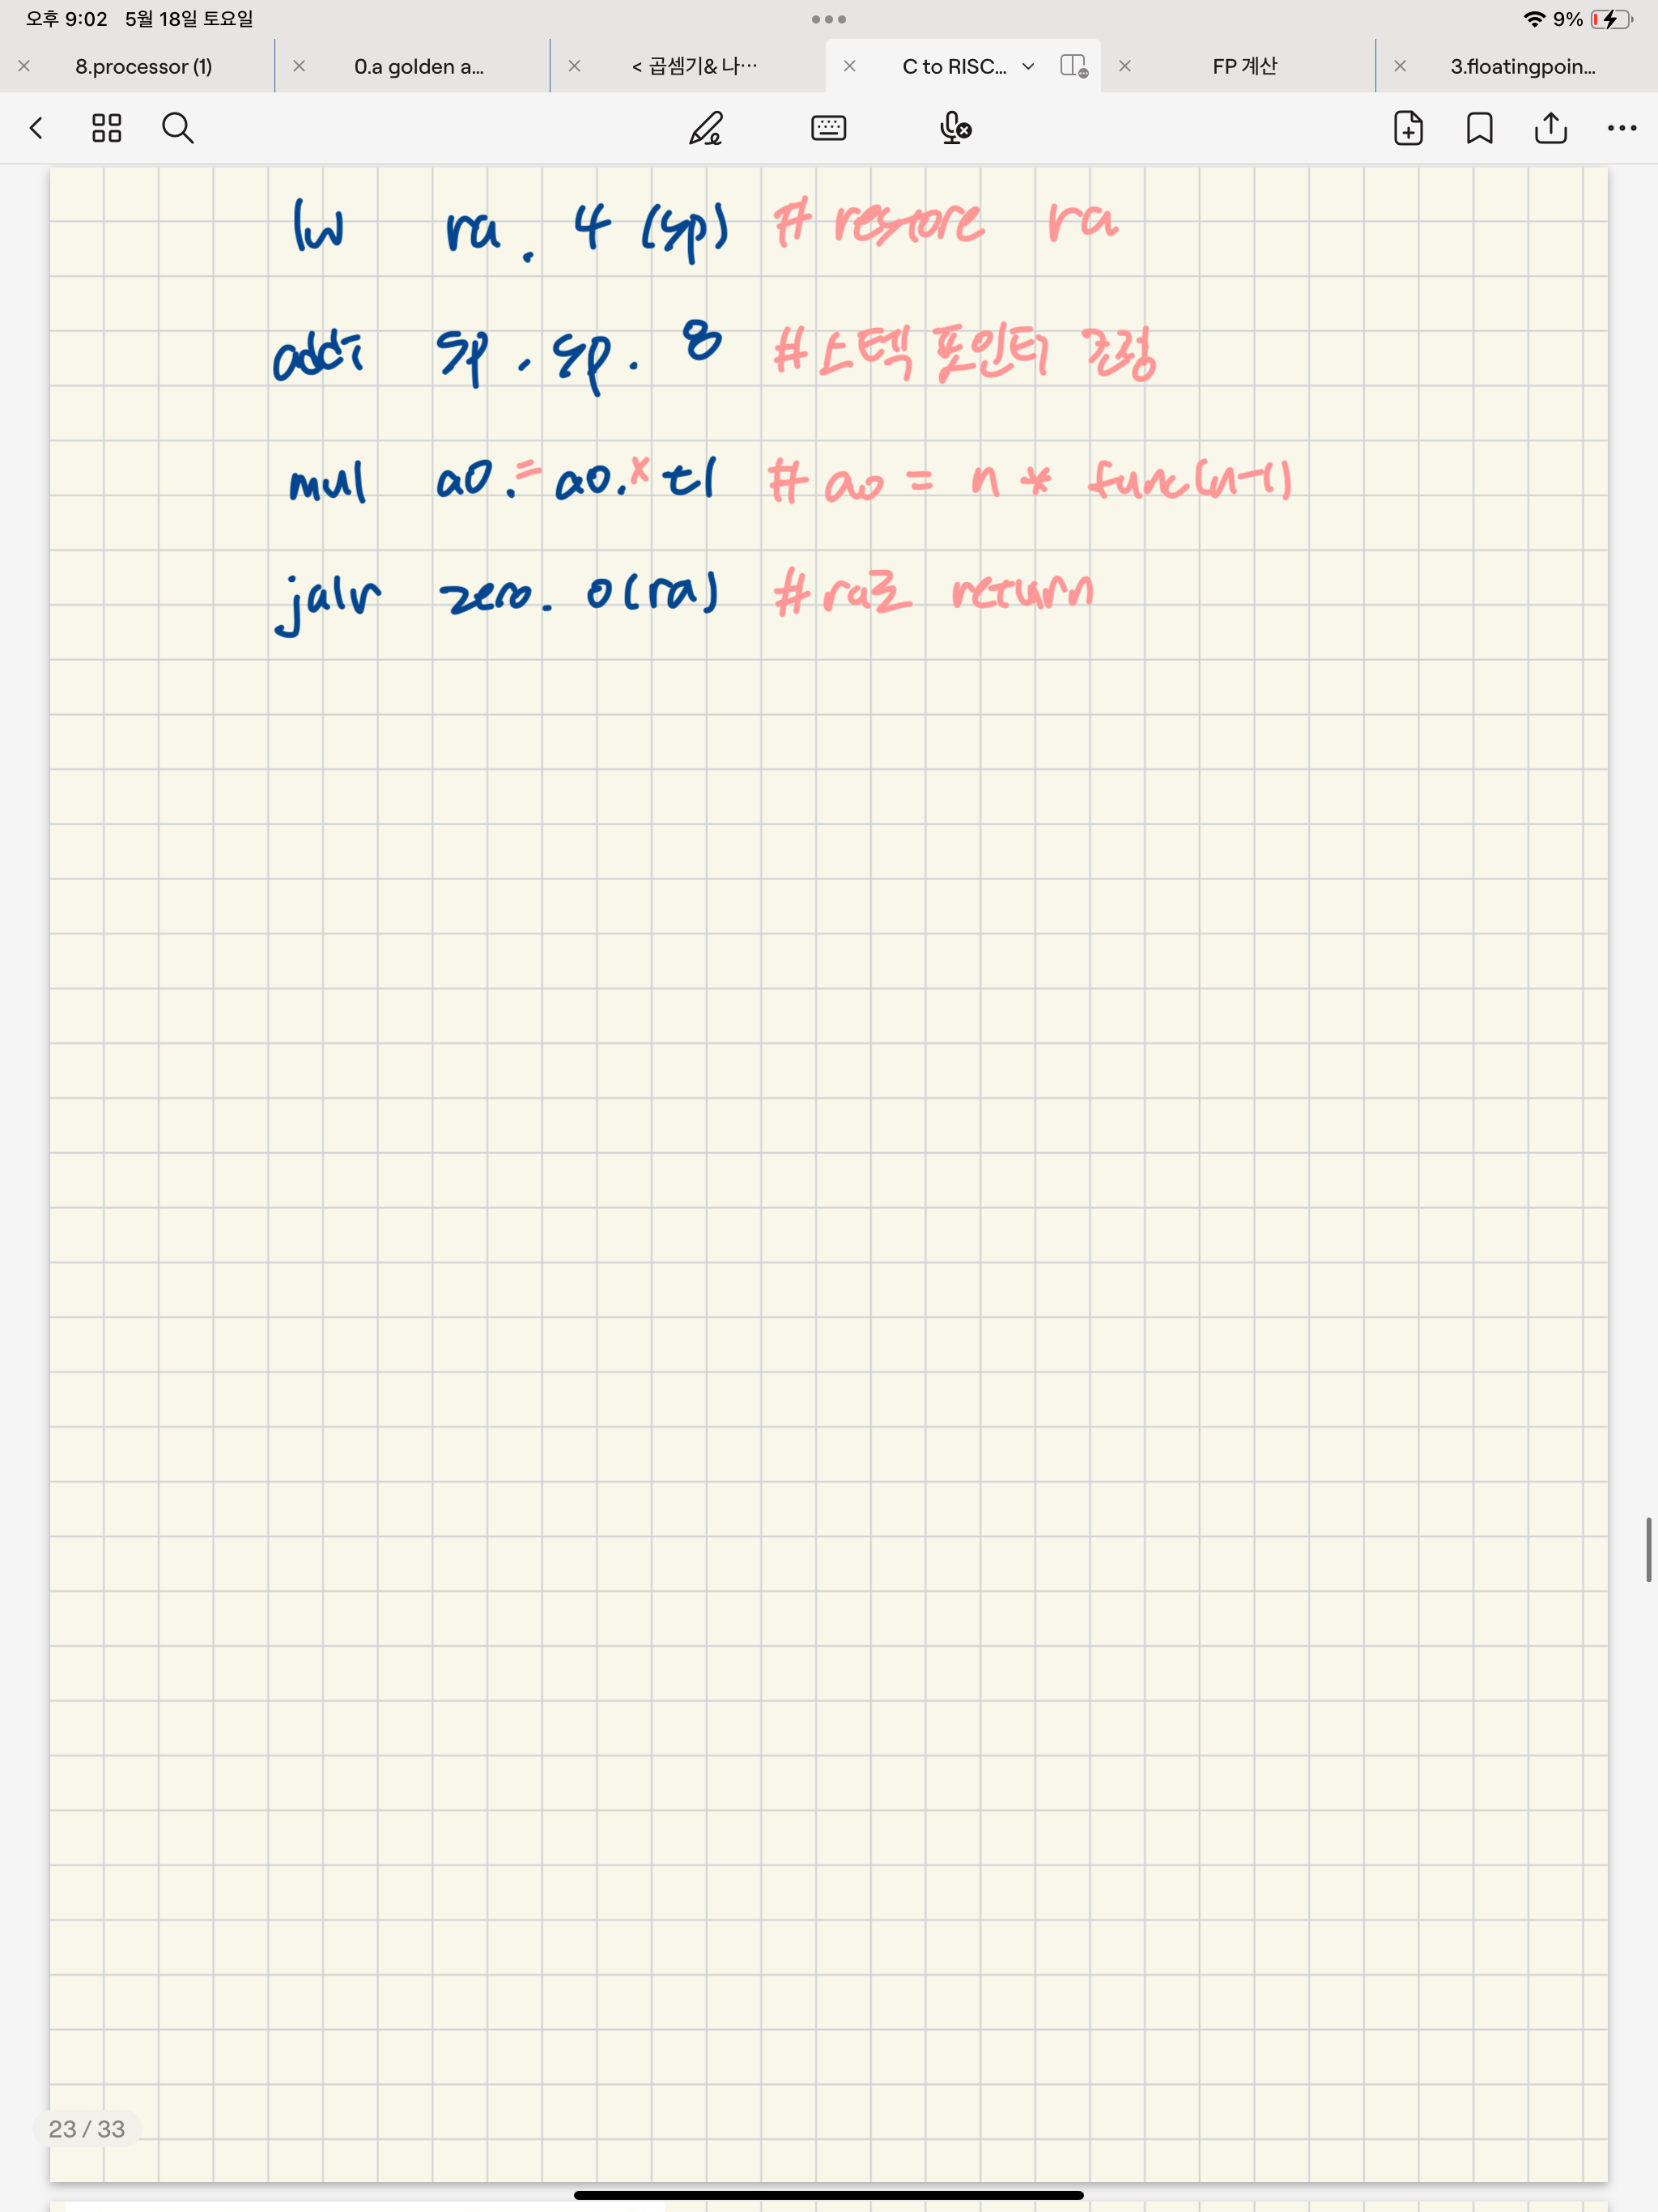 오후 9:02 5월 18일 토요일 9%
8.processor (1) 0.a golden a... < 곱셈기& 나… C to RISC... FP 계산 3.floatingpoin...
lw ra, 4 (sp) # restore ra
addi sp, sp, 8 #스텍 포인터 조정
mul a0, = a0, x t1 # a0 = n * func(n-1)
jalr zero, 0(ra) #ra로 return
23 / 33